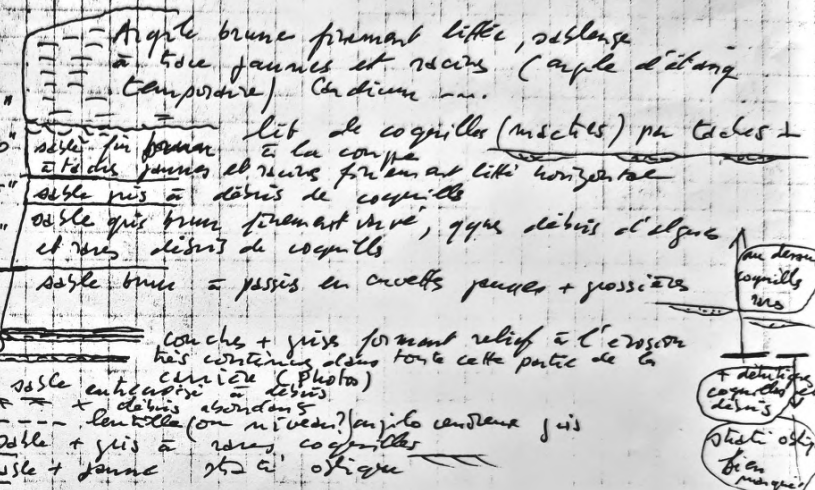 Argile brune finement litée, sableuse
à trace jaunes et racines (argile d'étang
temporaire) Cardium ....
lit de coquilles (mactres) par taches
sable fin brun à la coupe
à taches jaunes et racines finement lité horizontale
sable gris à débris de coquilles
sable gris brun finement varvé, qques débris d'algues
et rares débris de coquilles
sable brun à passées en cuvettes jaunes + grossières
au dessus
coquilles
rares
couches + grises formant relief à l'érosion
très continues dans toute cette partie de la
carrière (Photos)
sable entrecroisé à débris
+ débris abondants
lentille (ou niveau?) argilo cendreux gris
sable + gris à rares coquilles
sable + jaune strati oblique
+ détritique
coquilles et
débris
strati oblique
bien
marquée